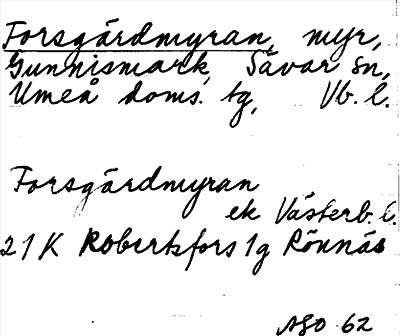 Forsgärdmyran, myr,
Gunnismark, Sävar sn,
Umeå doms. tg, Vb. l.
Forsgärdmyran
ek Västerb. l.
21K Robertsfors 1g Rönnäs
ASO 62